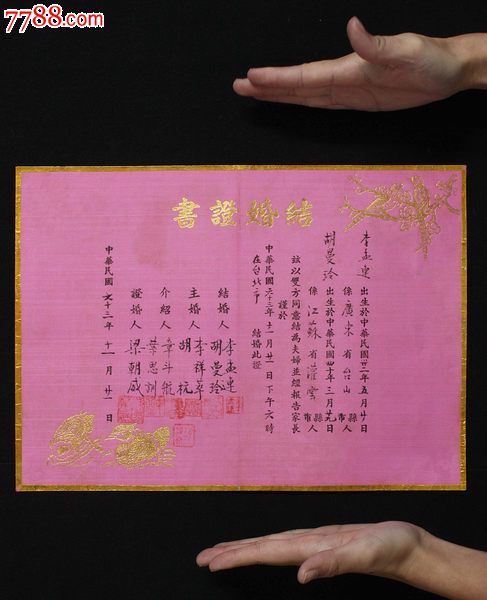 7788.com
結婚證書
李孟連 出生於中華民國卅一年五月廿日
係廣東省台山縣市人
胡曼玲 出生於中華民國四十年三月廿九日
係江蘇省灌雲縣市人
茲以雙方同意結為夫婦並經報告家長
謹於
中華民國六十三年十一月廿一日下午六時
在台北市 結婚此證
結婚人 李孟連
胡曼玲
主婚人 李祥萃
胡杭
介紹人 章斗航
葉思訓
證婚人 梁朝威
中華民國六十三年十一月廿一日